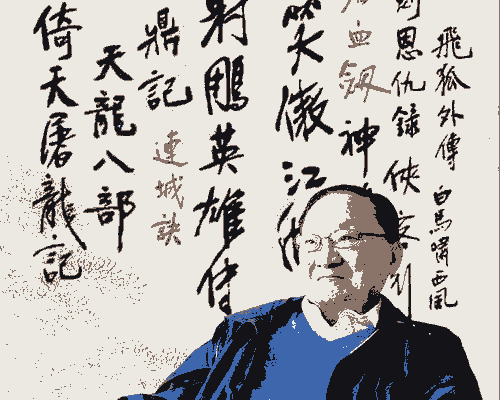 飛狐外傳
白馬嘯西風
劍恩仇錄
俠客行
血劍
神
笑傲江
射鵰英雄傳
鼎記
連城訣
天龍八部
倚天屠龍記